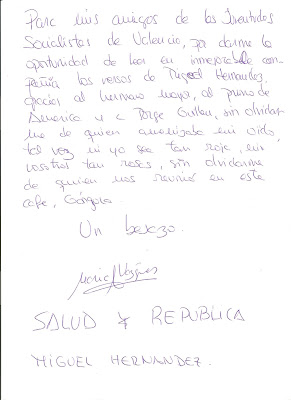 Para mis amigos de las Juventudes
Socialistas de Valencia, por darme la
oportunidad de leer en inmejorable com-
pañía los versos de Miguel Hernandez.
gracias al hermano mayor, al primo de
America y a Jorge Guillen, sin olvidar-
me de quien amenizaba mi vida
tal vez ni yo sea tan roja, ni
vosotros tan rosas, sin olvidarme
de quien nos reunió en este
cafe, Górgora
Un bezazo.
Maria
SALUD Y REPUBLICA
MIGUEL HERNANDEZ.